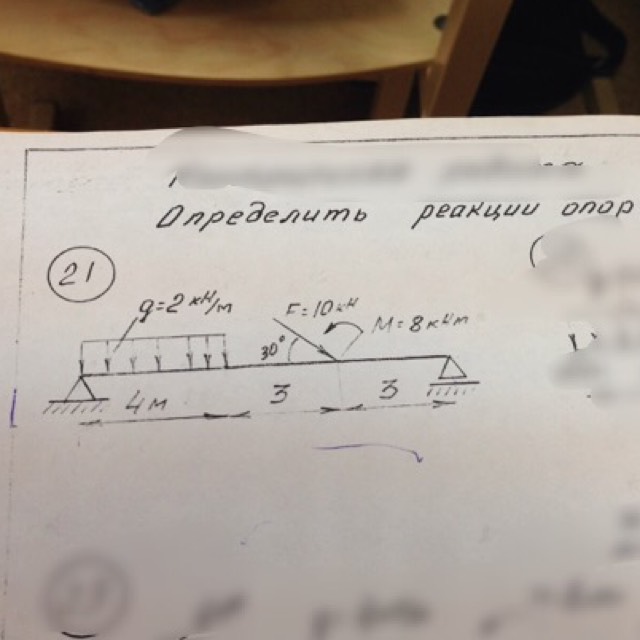 Определить реакции опор
21
q=2 кН/м
F=10кН
M=8кНм
30°
4м 3 3